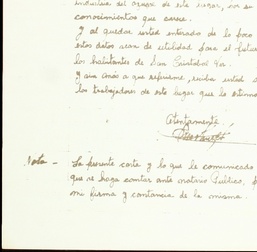 inclusive del atraso de este lugar, por su
conocimientos que carece.
Y al quedar usted enterado de lo poco
estos datos sean de utilidad para el futur
los habitantes de San Cristobal Ya.
Y sinAndo a que referirme, reciba usted s
los trabajadores de este lugar que lo estima
Atentamente
Nota - La presente carta y lo que le comunicado
que se haga constar ante notario Público, p
mi firma y constancia de la misma.